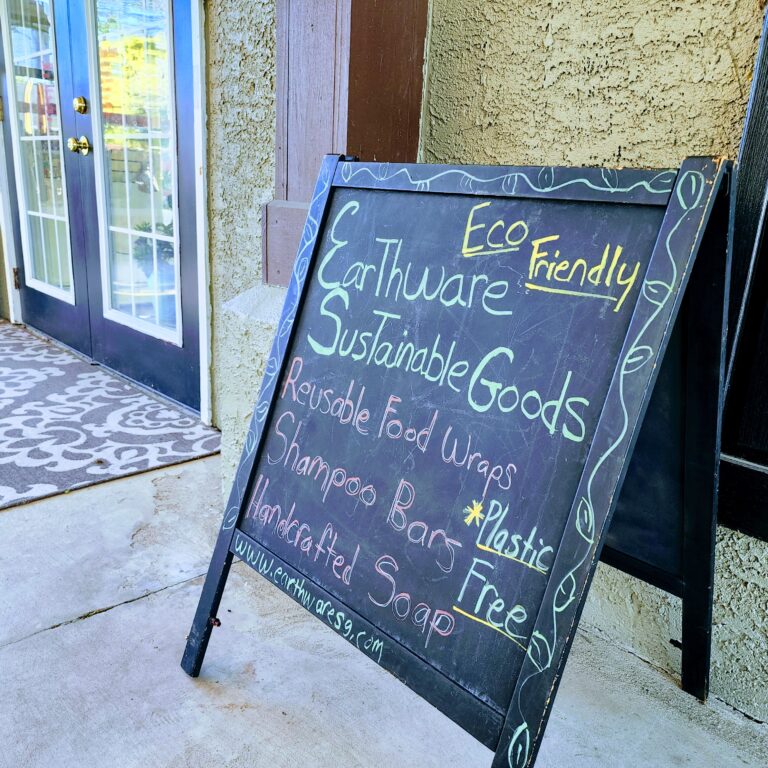 Eco
Friendly
Earthware
Sustainable Goods
Reusable Food Wraps
Shampoo Bars
Handcrafted Soap
*Plastic
Free
www.earthwaresg.com